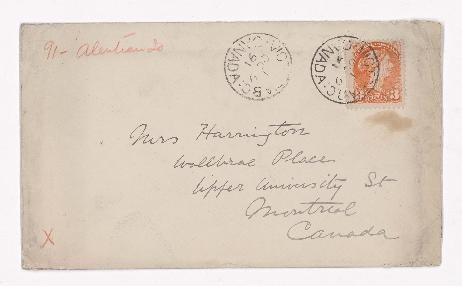 91-
VIC
B.C.
CANADA
VIC
B.C.
CANADA
3
Mrs Harrington
Wallbrae Place
Upper University St
Montreal
Canada
X